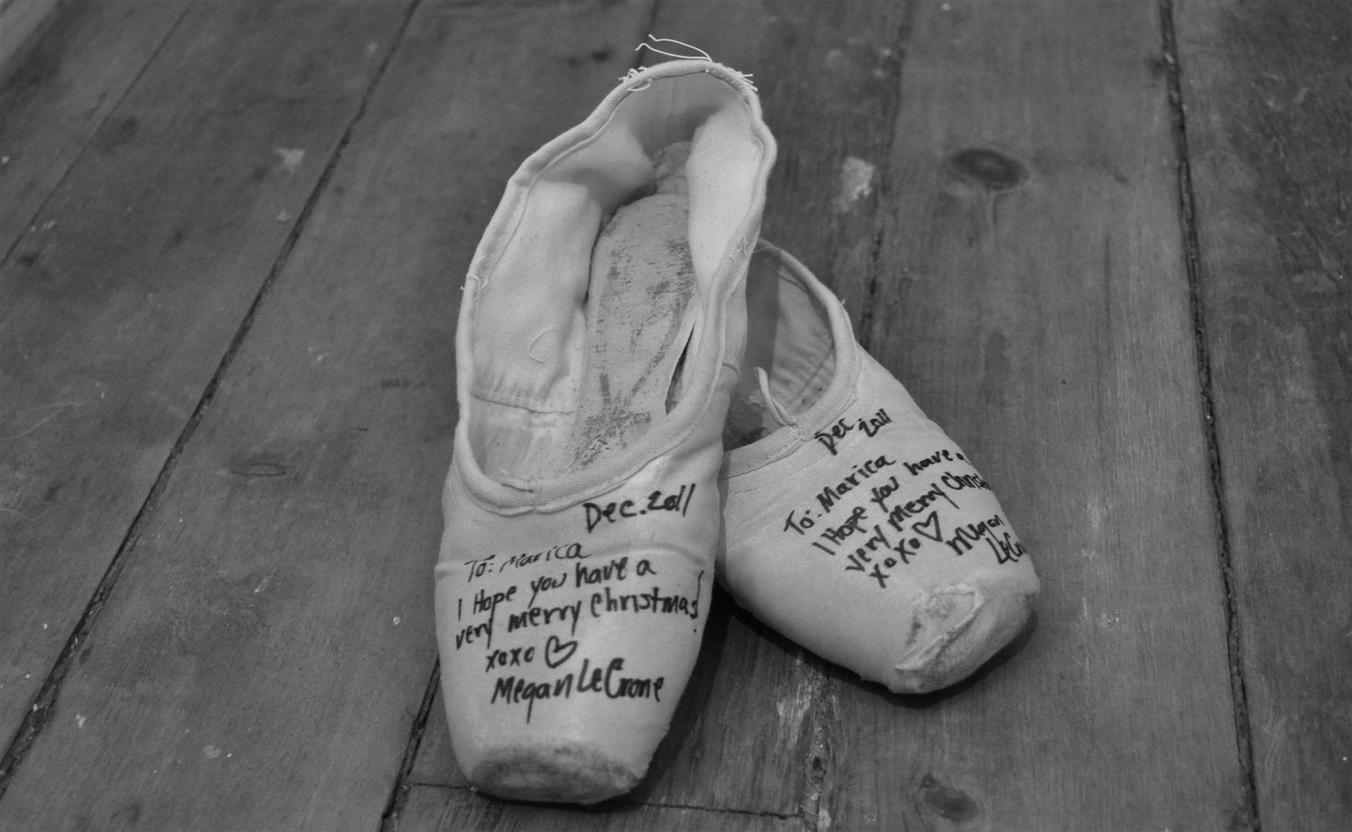 Dec. 2011
To: Marica
I Hope you have a
very merry Christmas!
xoxo ♡
Megan LeCrone
Dec 2011
To: Marica
I Hope you have a
very merry Christ
xoxo ♡ Megan
LeCro